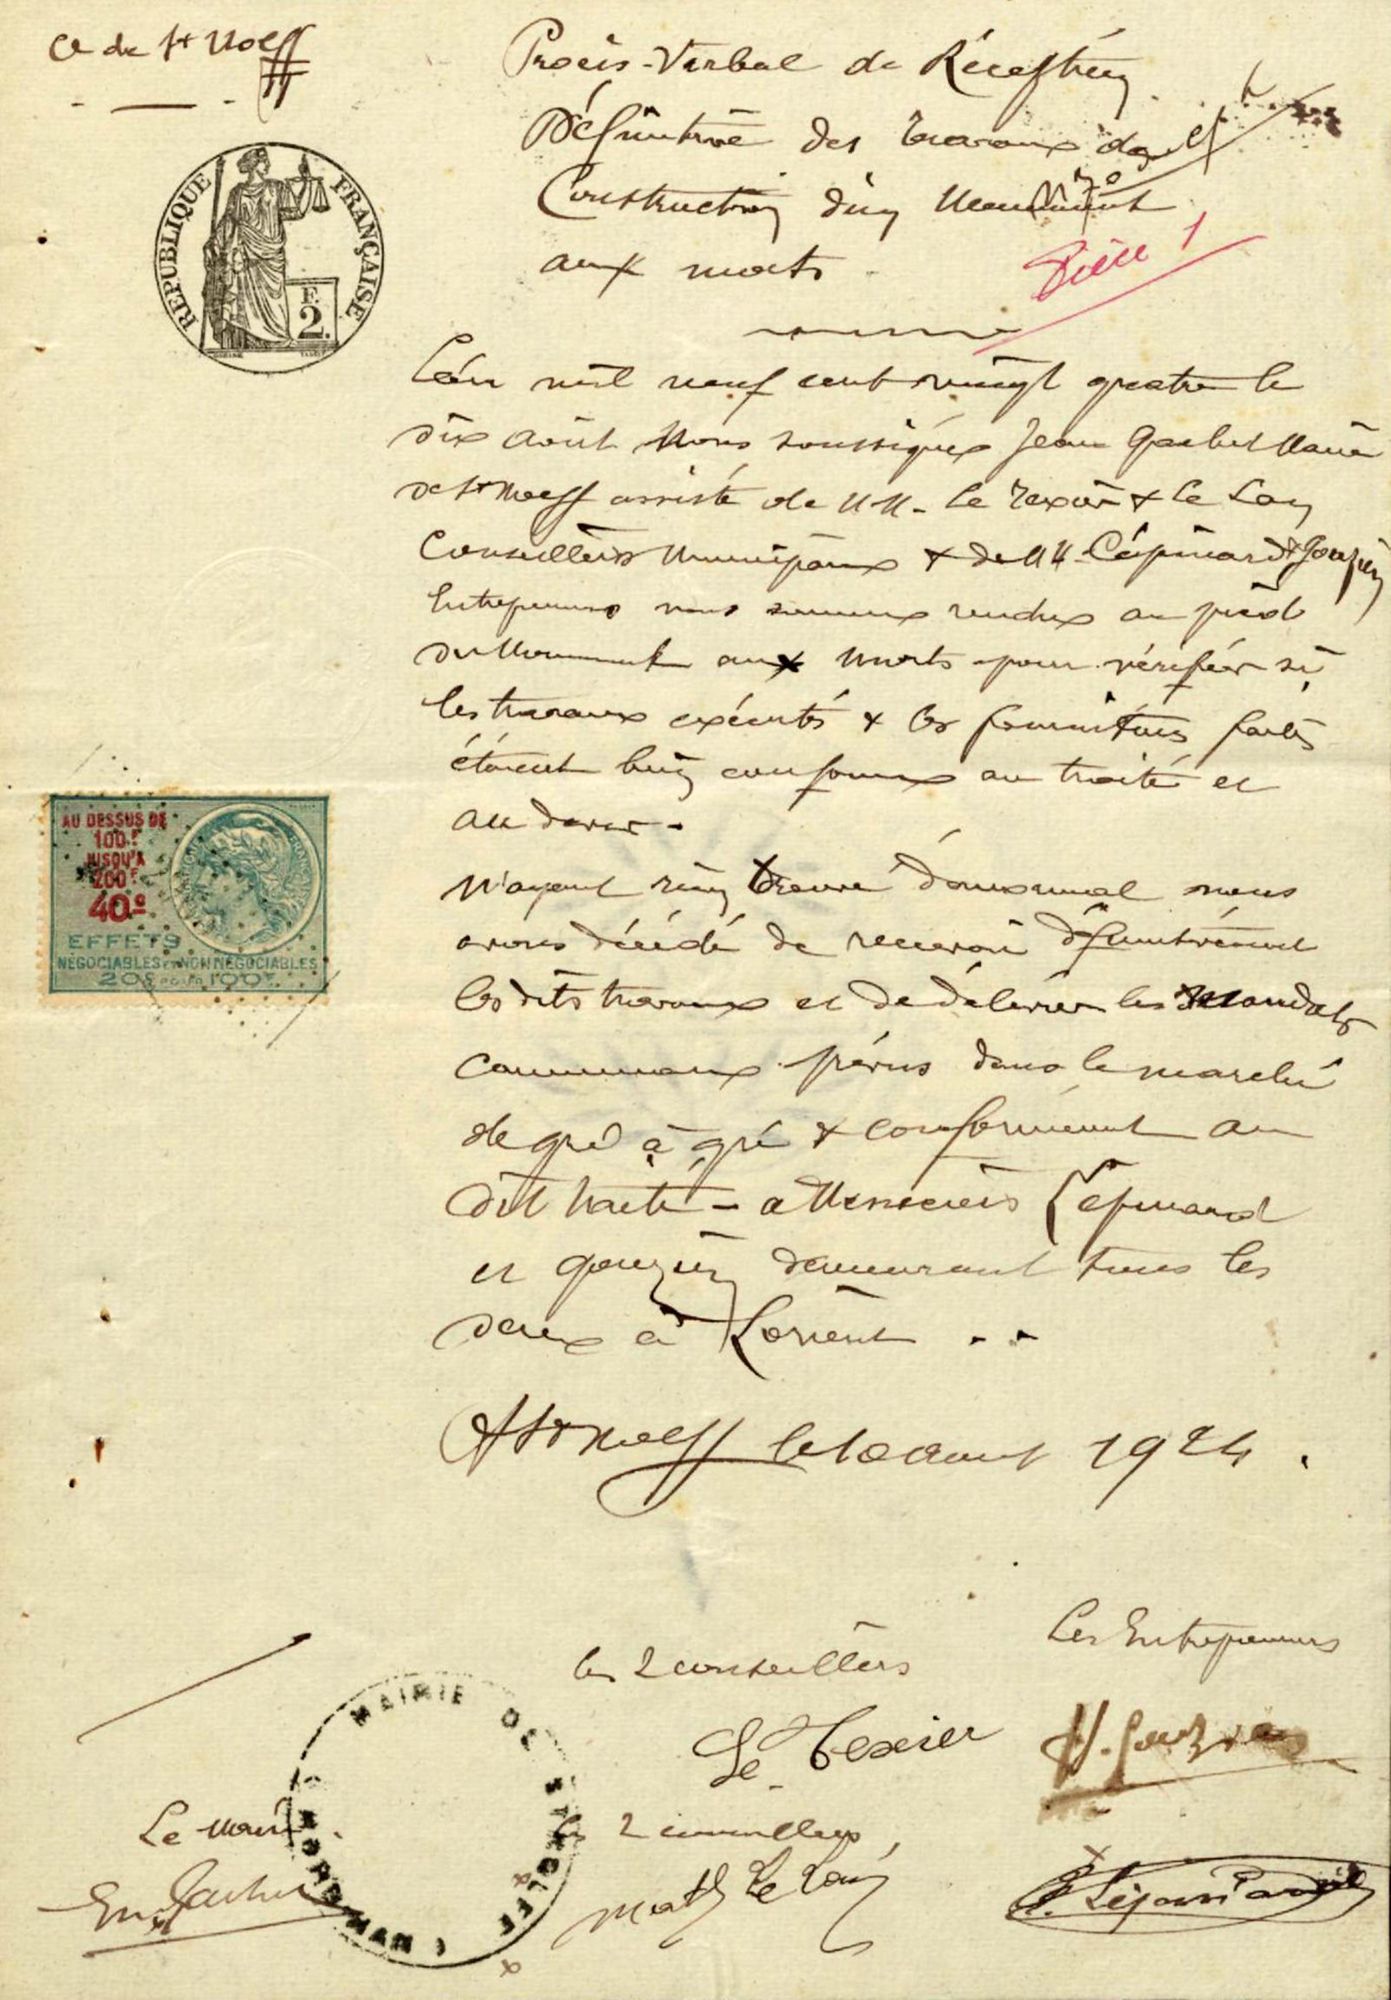 Ce de St Nolff
Procès-Verbal de Réception
Définitive des travaux de
Construction d'un Monument
aux morts
Pièce 1
RÉPUBLIQUE FRANÇAISE
F.
2.
L'an mil neuf cent vingt quatre le
dix août Nous soussignés Jean Gachet Maire
de St Nolff assisté de MM. Le Texier & Le Lay
Conseillers Municipaux & de MM. Lépinard & Gouzien
Entrepreneurs nous sommes rendus au pied
du Monument aux Morts pour vérifier si
les travaux exécutés & les fournitures faites
étaient bien conformes au traité et
au devis.
N'ayant rien trouvé d'anormal nous
avons décidé de recevoir définitivement
les dits travaux et de délivrer les mandats
communaux prévus dans le marché
de gré à gré & conformément au
dit traité - à Messieurs Lépinard
et Gouzien demeurant tous les
deux à Lorient ..
A St Nolff le 10 août 1924.
AU DESSUS DE
100F
JUSQU'A
200F
40c
EFFETS
NÉGOCIABLES ET NON NÉGOCIABLES
20c POUR 100F
Les Entrepreneurs
les 2 conseillers
Le Texier
H. Gouzien
MAIRIE DE ST NOLFF (MORBIHAN)
Le Maire
les 2 conseillers
Math Le Lay